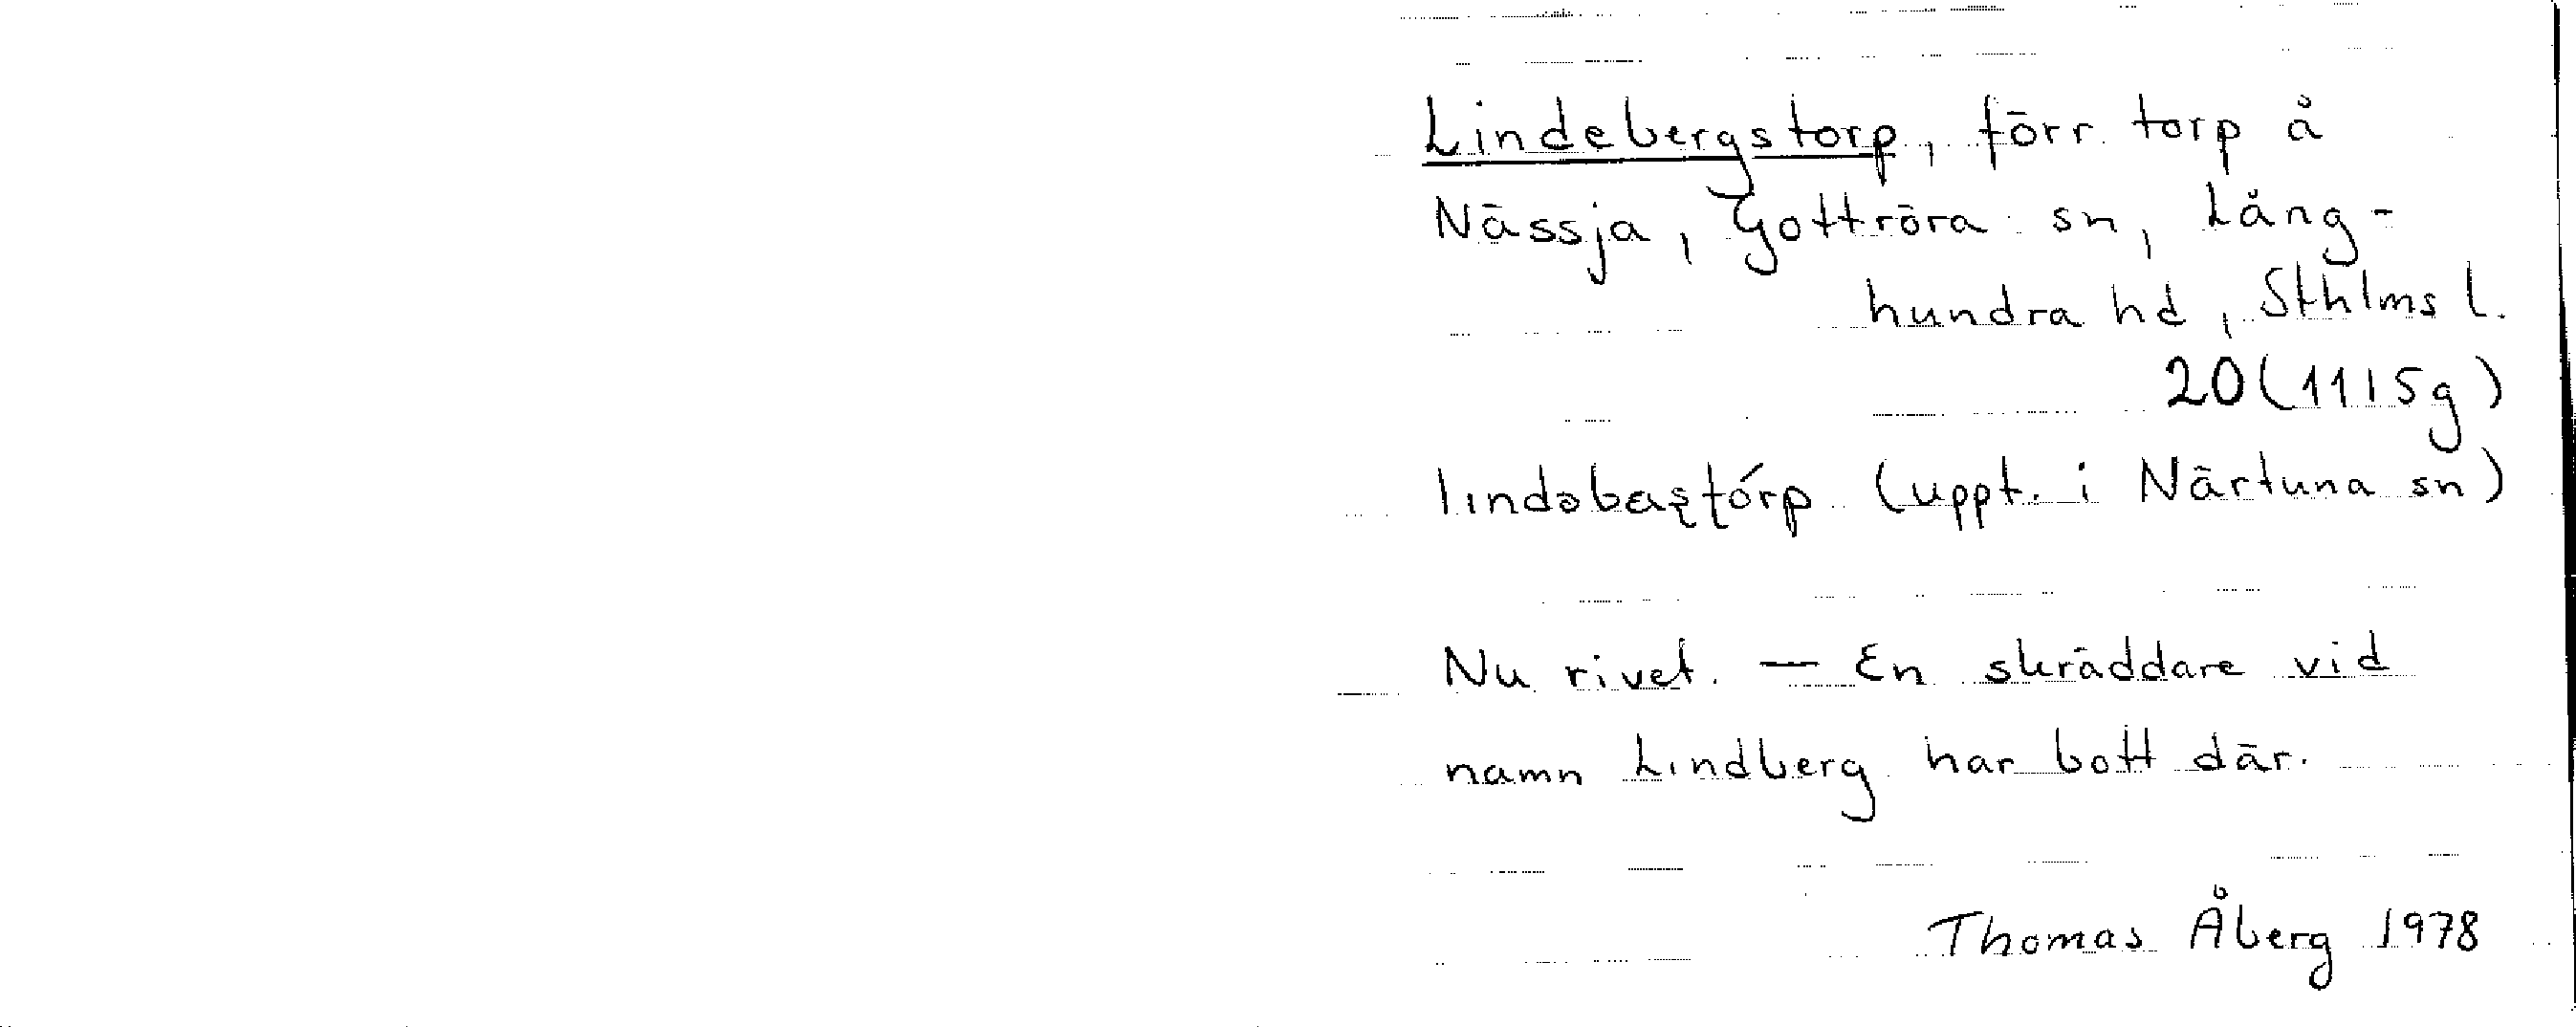 Lindebergstorp, förr torp å
Nässja, Gottröra sn, Lång-
hundra hd, Sthlms l.
20 (1115g)
lındəbaʂʈórp (uppt. i Närtuna sn)
Nu rivet. — En skräddare vid
namn Lindberg har bott där.
Thomas Åberg 1978